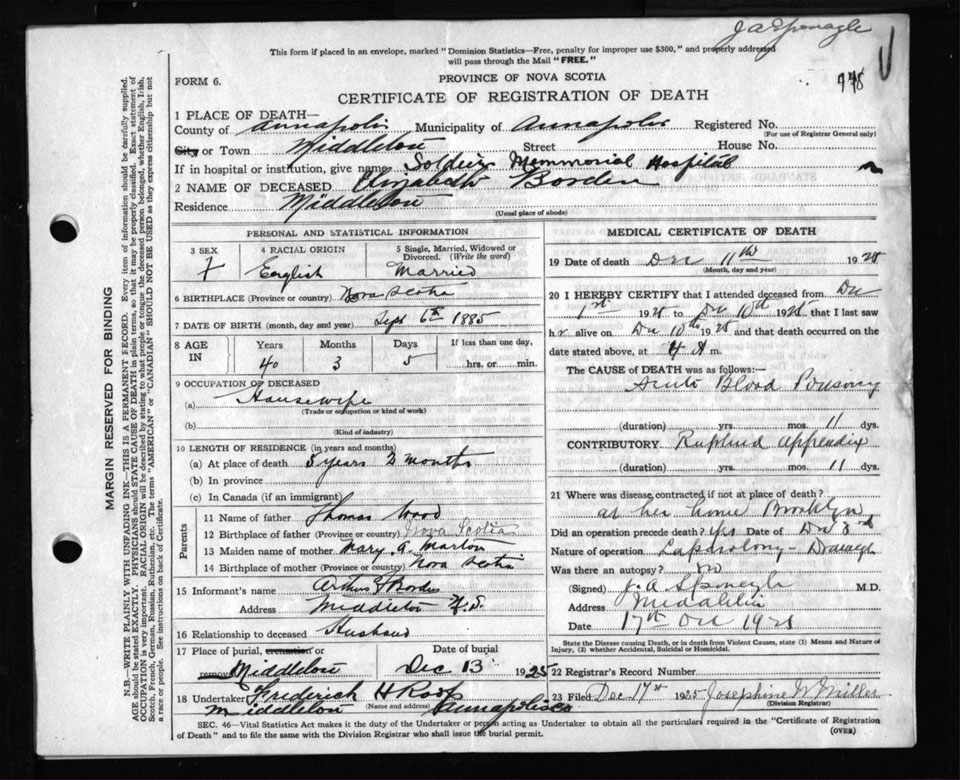 J A Sponagle
This form if placed in an envelope, marked "Dominion Statistics—Free, penalty for improper use $300," and properly addressed
will pass through the Mail "FREE."
PROVINCE OF NOVA SCOTIA
FORM 6.
CERTIFICATE OF REGISTRATION OF DEATH
1 PLACE OF DEATH—
County of Annapolis Municipality of Annapolis Registered No.
(For use of Registrar General only)
City or Town Middleton Street House No.
If in hospital or institution, give name Soldiers Memmorial Hospital
2 NAME OF DECEASED Elizabeth Borden
Residence Middleton
(Usual place of abode)
PERSONAL AND STATISTICAL INFORMATION
3 SEX 4 RACIAL ORIGIN 5 Single, Married, Widowed or
Divorced. (Write the word)
f English Married
6 BIRTHPLACE (Province or country) Nova Scotia
7 DATE OF BIRTH (month, day and year) Sept 6th 1885
8 AGE IN Years Months Days If less than one day,
40 3 5 hrs. or min.
9 OCCUPATION OF DECEASED
(a) Housewife
(Trade or occupation or kind of work)
(b)
(Kind of industry)
10 LENGTH OF RESIDENCE (in years and months)
(a) At place of death years 2 months
(b) In province
(c) In Canada (if an immigrant)
Parents
11 Name of father Thomas Wood
12 Birthplace of father (Province or country) Nova Scotia
13 Maiden name of mother Mary A.
14 Birthplace of mother (Province or country) Nova Scotia
15 Informant's name Arthur Borden
Address Middleton N.S.
16 Relationship to deceased Husband
17 Place of burial, cremation or Date of burial
removal Middleton Dec 13 1925
18 Undertaker Frederick H Roop
(Name and address)
Middleton Annapolis Co
MEDICAL CERTIFICATE OF DEATH
19 Date of death Dec 11th 1925
(Month, day and year)
20 I HEREBY CERTIFY that I attended deceased from Dec
1st 1925 to Dec 10th 1925 that I last saw
her alive on Dec 10th 1925 and that death occurred on the
date stated above, at 4 A m.
The CAUSE OF DEATH was as follows:—
Acute Blood Poisoning
(duration) yrs. mos. 11 dys.
CONTRIBUTORY Ruptured Appendix
(duration) yrs. mos. 11 dys.
21 Where was disease contracted if not at place of death?
at her home Brooklyn
Did an operation precede death? Yes Date of Dec 3rd
Nature of operation Laparotomy - Drainage
Was there an autopsy? no
(Signed) J. A. Sponagle M.D.
Address Middleton
Date 17th
State the Disease causing Death, or in death from Violent Causes, state (1) Means and Nature of
Injury, (2) whether Accidental, Suicidal or Homicidal.
22 Registrar's Record Number
23 Filed Dec 17th 1925 Josephine W Miller
(Division Registrar)
SEC. 46—Vital Statistics Act makes it the duty of the Undertaker or person acting as Undertaker to obtain all the particulars required in the "Certificate of Registration
of Death" and to file the same with the Division Registrar who shall issue the burial permit.
(OVER)
MARGIN RESERVED FOR BINDING
N.B.—WRITE PLAINLY WITH UNFADING INK—THIS IS A PERMANENT RECORD. Every item of information should be carefully supplied.
AGE should be stated EXACTLY. PHYSICIANS should STATE CAUSE OF DEATH in plain terms, so that it may be properly classified. Exact statement of
OCCUPATION is very important. RACIAL ORIGIN will be described by stating to what people or tongue the deceased person belonged, whether English, Irish,
Scotch, French, German, Russian, Ruthenian, etc. The terms "AMERICAN" or "CANADIAN" SHOULD NOT BE USED as they express citizenship but not
a race or people. See instructions on back of Certificate.